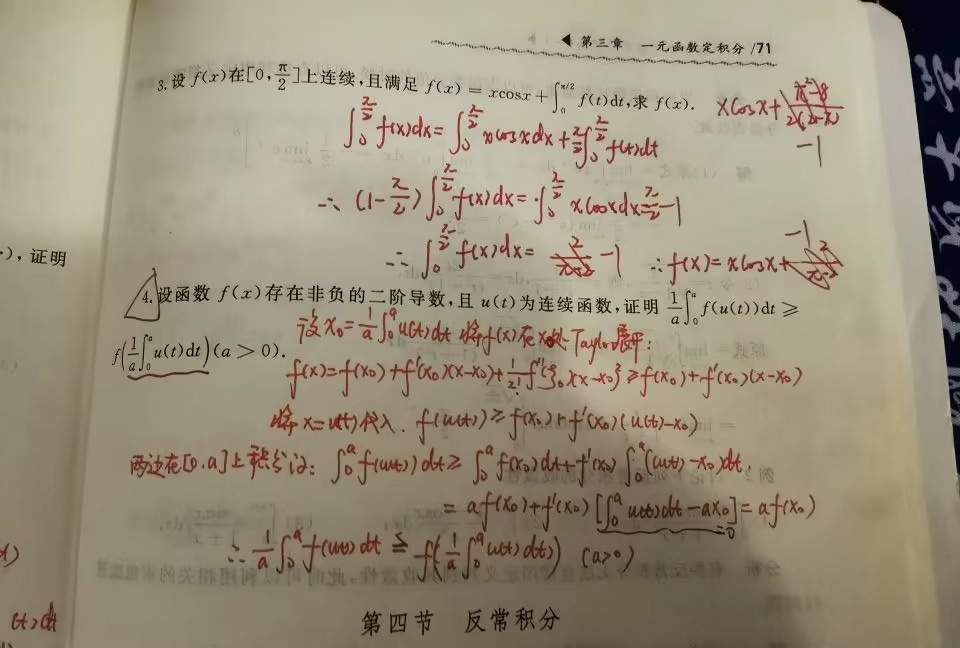 ◀ 第三章 一元函数定积分 /71
3.设 f(x)在[0,π/2]上连续,且满足 f(x) = xcosx+∫₀^{π/2} f(t)dt,求 f(x).
xcosx+
-1
∫₀^{π/2} f(x)dx=∫₀^{π/2} xcosxdx+π/2∫₀^{π/2} f(t)dt
∴ (1-π/2)∫₀^{π/2} f(x)dx=∫₀^{π/2} xcosxdx=π/2-1
-1
∴ ∫₀^{π/2} f(x)dx= -1 ∴ f(x)=xcosx+
),证明
4.设函数 f(x)存在非负的二阶导数,且 u(t)为连续函数,证明 1/a∫₀^a f(u(t))dt ≥
设x₀=1/a∫₀^a u(t)dt 将f(x)在x₀处Taylor展开:
f(1/a∫₀^a u(t)dt)(a > 0).
f(x)=f(x₀)+f'(x₀)(x-x₀)+1/2! f''(ξ)(x-x₀)² ≥f(x₀)+f'(x₀)(x-x₀)
将x=u(t)代入. f(u(t))≥f(x₀)+f'(x₀)(u(t)-x₀)
两边在[0.a]上积分: ∫₀^a f(u(t))dt≥∫₀^a f(x₀)dt+f'(x₀)∫₀^a(u(t)-x₀)dt.
=af(x₀)+f'(x₀)[∫₀^a u(t)dt-ax₀]=af(x₀)
=0
∴ 1/a∫₀^a f(u(t))dt ≥ f(1/a∫₀^a u(t)dt) (a>0)
(t)dt
第四节 反常积分